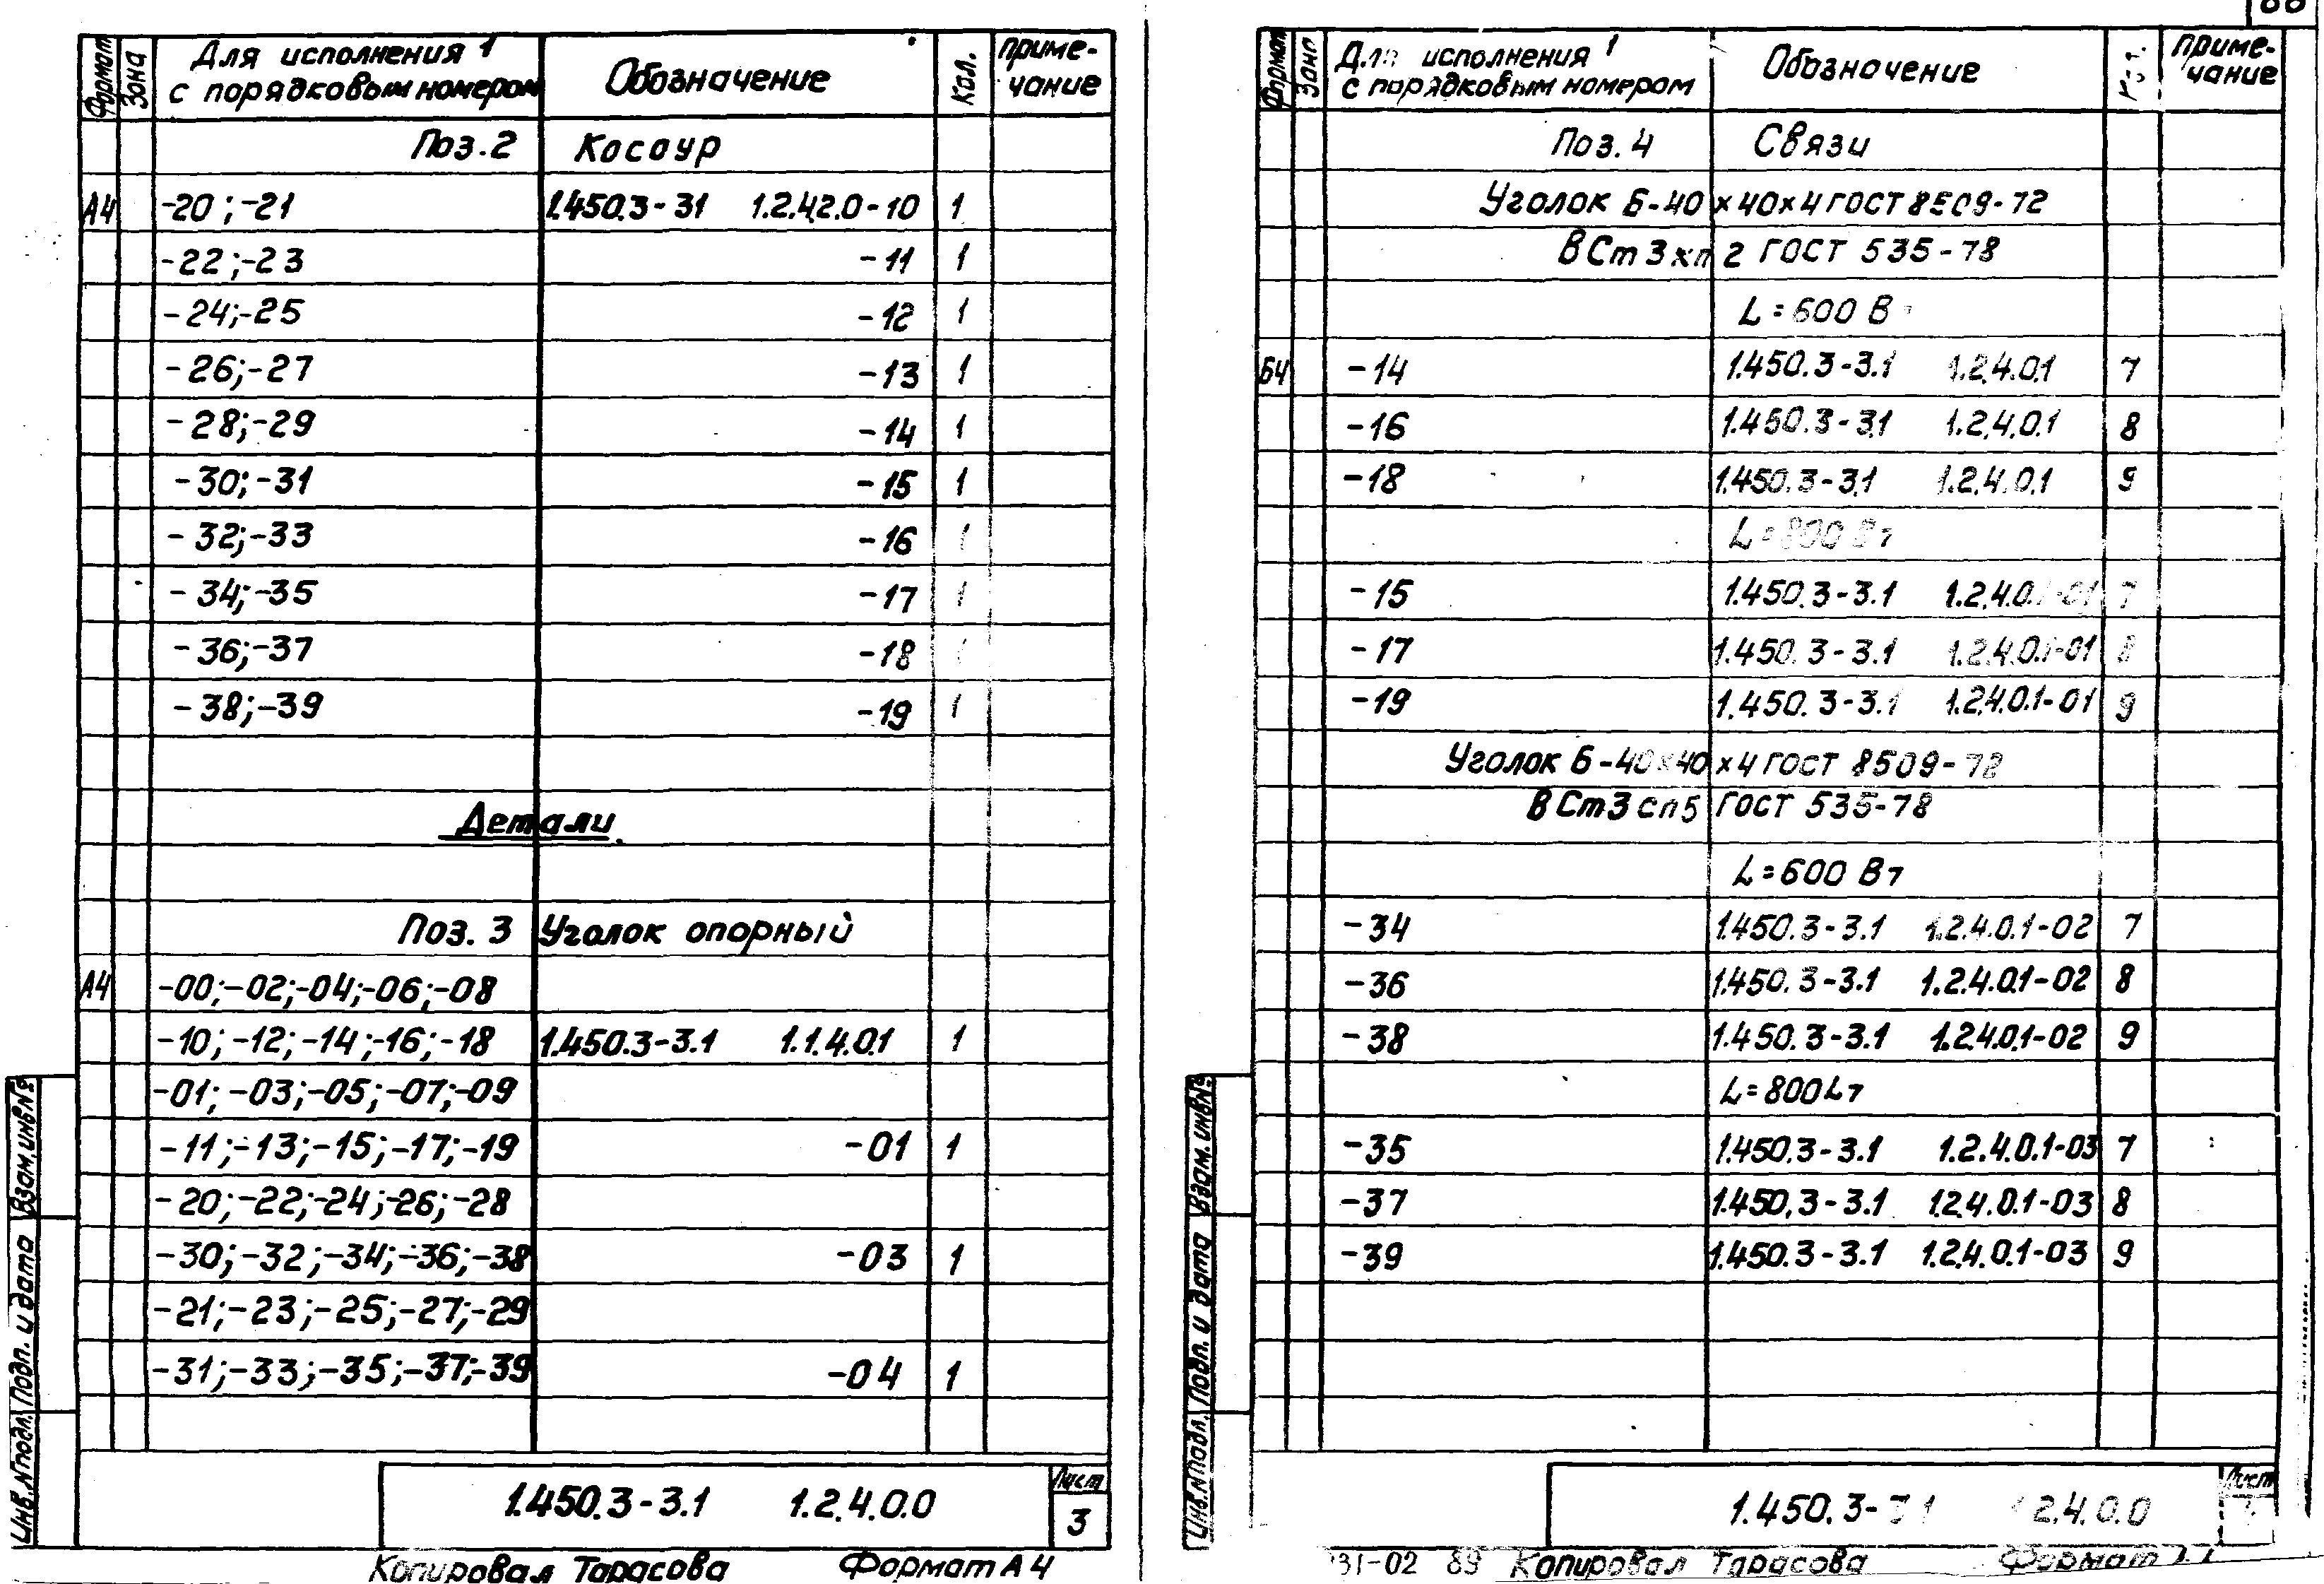 Формат Зона Для исполнения 1 с порядковым номером Обозначение Кол. Приме-чание
Поз.2 Косоур
А4 -20;-21 1.450.3-3.1 1.2.4.2.0-10 1
-22;-23 -11 1
-24;-25 -12 1
-26;-27 -13 1
-28;-29 -14 1
-30;-31 -15 1
-32;-33 -16 1
-34;-35 -17 1
-36;-37 -18 1
-38;-39 -19 1
Детали
Поз. 3 Уголок опорный
А4 -00;-02;-04;-06;-08
-10;-12;-14;-16;-18 1.450.3-3.1 1.1.4.0.1 1
-01;-03;-05;-07;-09
-11;-13;-15;-17;-19 -01 1
-20;-22;-24;-26;-28
-30;-32;-34;-36;-38 -03 1
-21;-23;-25;-27;-29
-31;-33;-35;-37;-39 -04 1
Инв.№подл. Подп. и дата Взам.инв№
1.450.3-3.1 1.2.4.0.0
Лист
3
Копировал Тарасова Формат А4
Формат Зона Для исполнения 1 с порядковым номером Обозначение Приме-чание
Поз. 4 Связи
Уголок Б-40×40×4 ГОСТ 8509-72
ВСт3кп2 ГОСТ 535-78
L=600
Б4 -14 1.450.3-3.1 1.2.4.0.1 7
-16 1.450.3-3.1 1.2.4.0.1 8
-18 1.450.3-3.1 1.2.4.0.1 9
L=800
-15 1.450.3-3.1 1.2.4.0.1-01 7
-17 1.450.3-3.1 1.2.4.0.1-01 8
-19 1.450.3-3.1 1.2.4.0.1-01 9
Уголок Б-40×40×4 ГОСТ 8509-72
ВСт3сп5 ГОСТ 535-78
L=600
-34 1.450.3-3.1 1.2.4.0.1-02 7
-36 1.450.3-3.1 1.2.4.0.1-02 8
-38 1.450.3-3.1 1.2.4.0.1-02 9
L=800
-35 1.450.3-3.1 1.2.4.0.1-03 7
-37 1.450.3-3.1 1.2.4.0.1-03 8
-39 1.450.3-3.1 1.2.4.0.1-03 9
Инв.№подл. Подп. и дата Взам.инв№
1.450.3-3.1 1.2.4.0.0
Лист
31-02 89 Копировал Тарасова Формат